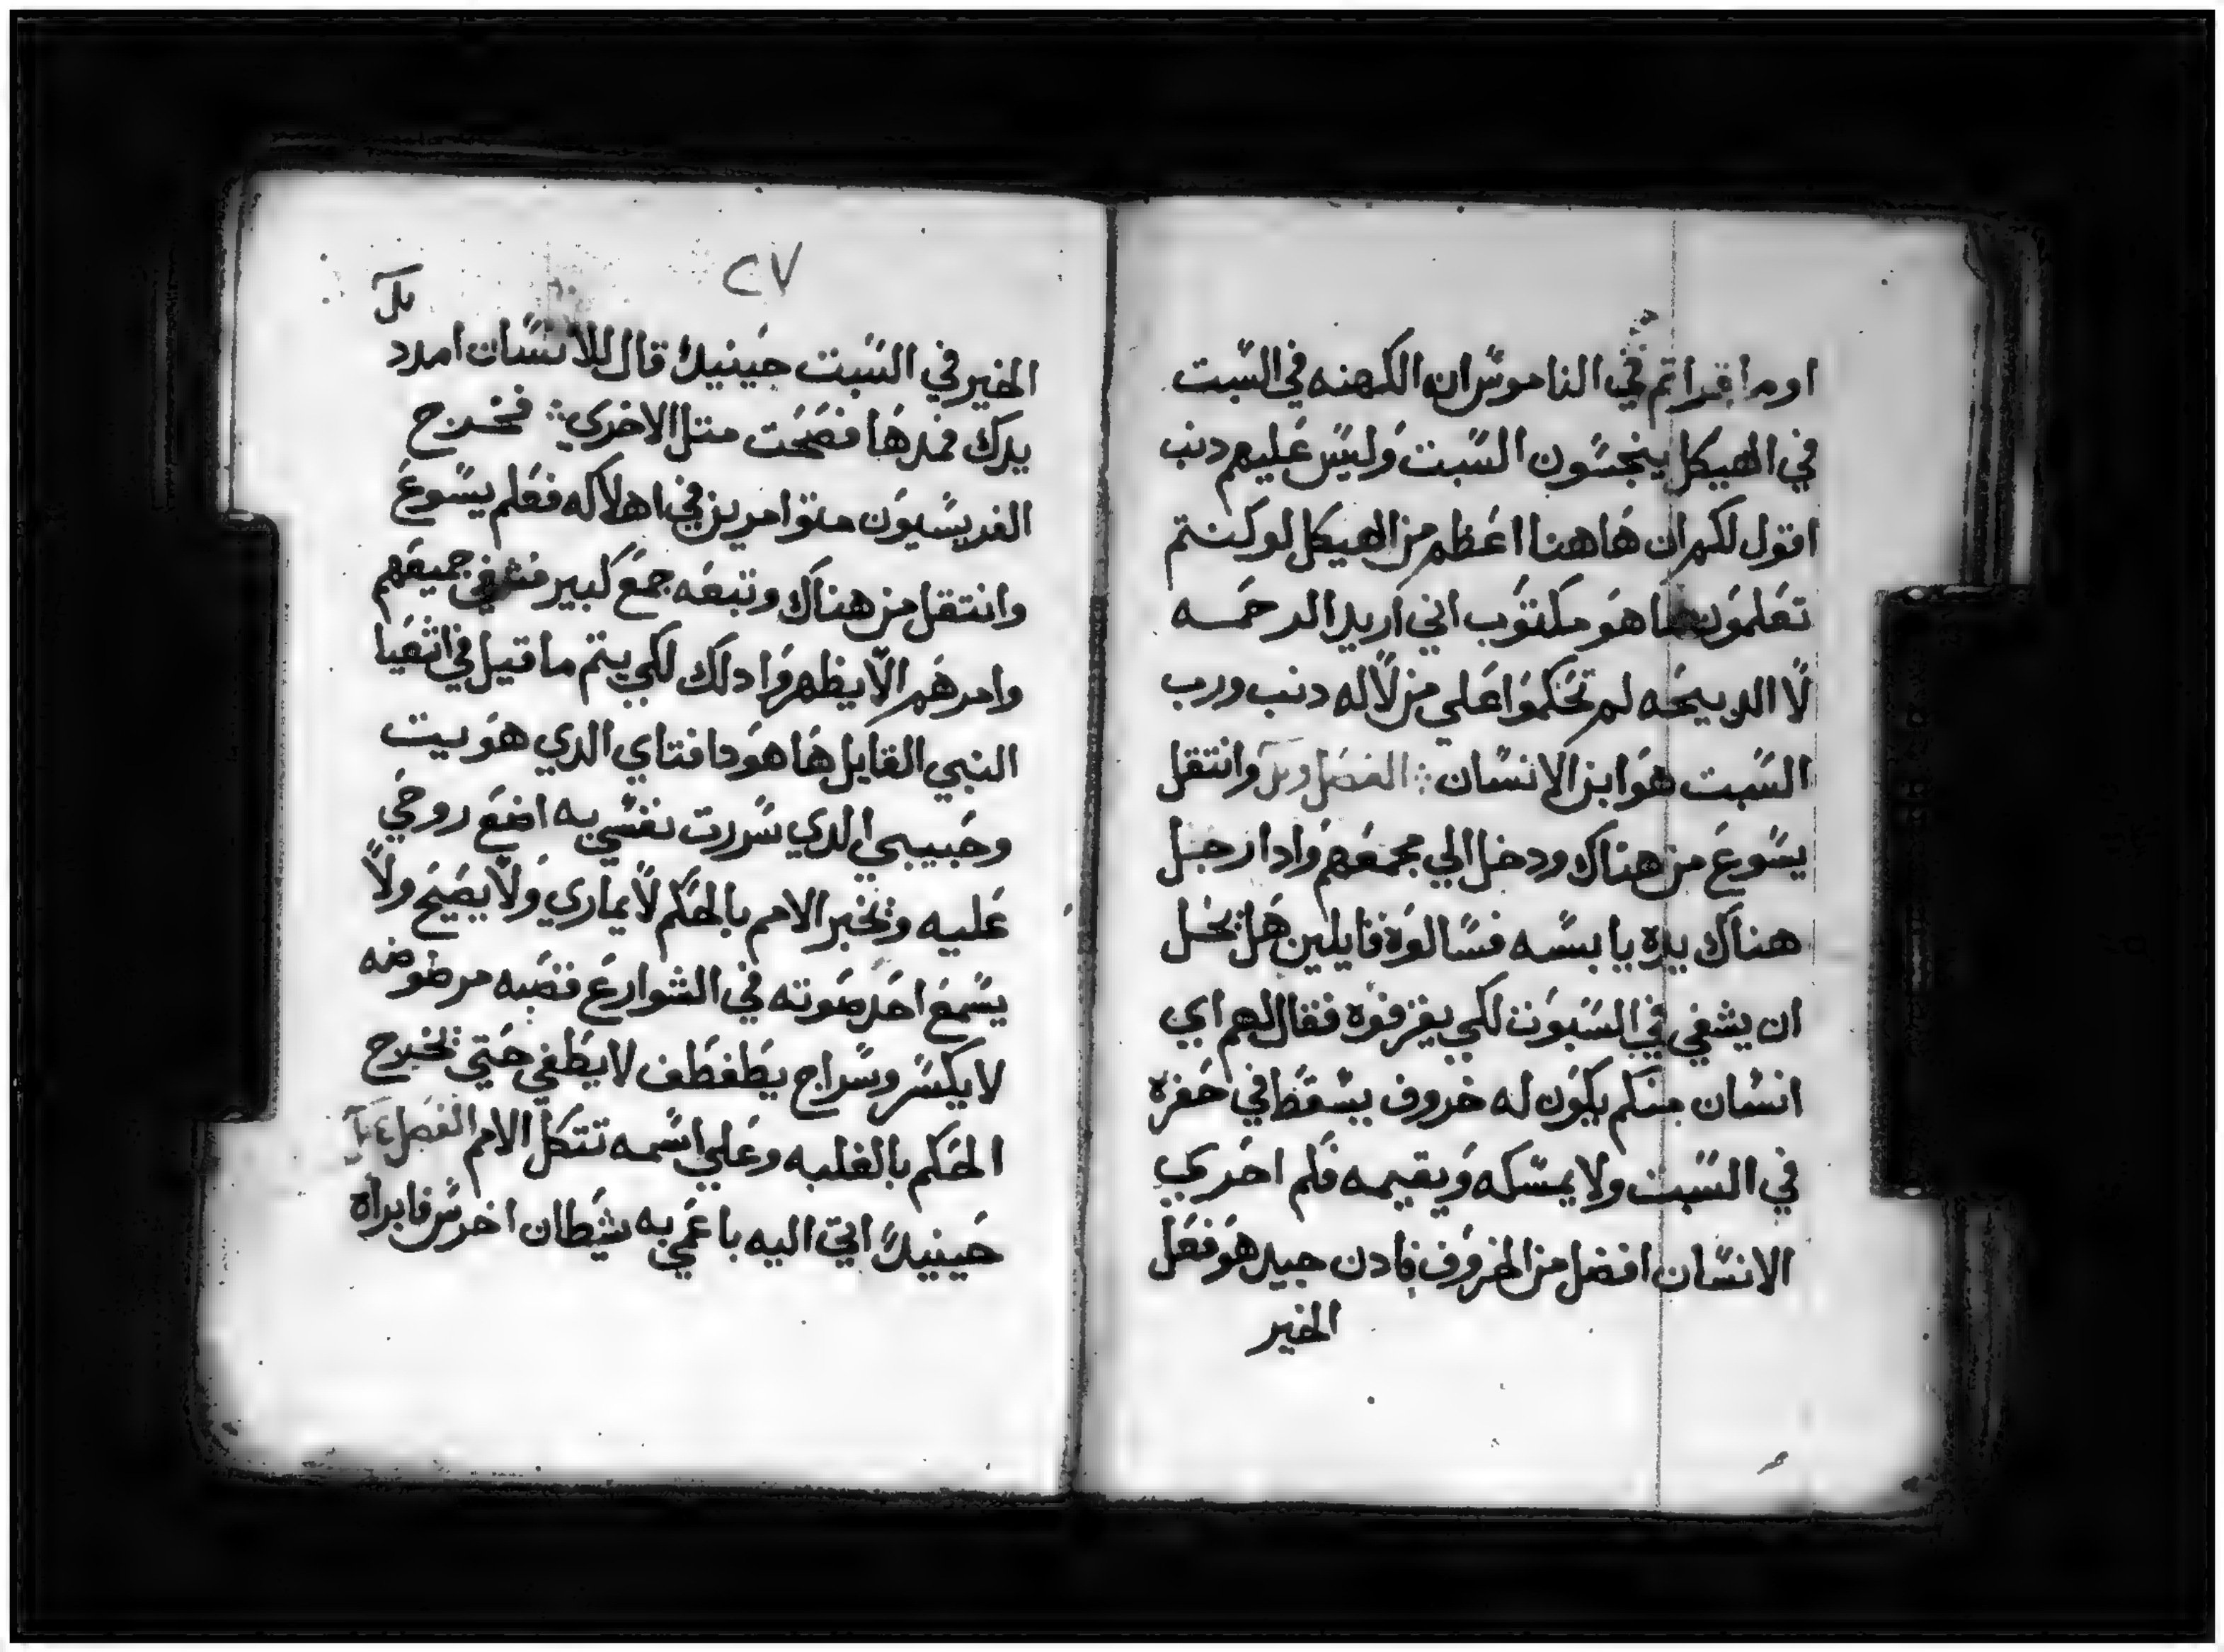 اوما قراتم في الناموس ان الكهنه في السبت
في الهيكل ينجسون السبت وليس عليهم دنب
اقول لكم ان هاهنا اعظم من الهيكل لو كنتم
تعلمون ما هو مكتوب اني اريد الرحمه
لا الدبيحه لم تحكموا علي من لا له دنب ورب
السبت هو ابن الانسان ∴ الفصل وانتقل
يسوع من هناك ودخل الي مجمعهم وادا رجل
هناك يده يابسه فسالوه قايلين هل يحل
ان يشفي في السبوت لكي يقرفوه فقال لهم اي
انسان منكم يكون له خروف يسقط في حفره
في السبت ولا يمسكه ويقيمه فكم احري
الانسان افضل من الخروف فادن جيد هو فعل
الخير
٢٧
الخير في السبت حينيد قال للانسان امدد
يدك فمدها فصحت متل الاخري ∴ فخرج
الفريسيون متوامرين في اهلاكه فعلم يسوع
وانتقل من هناك وتبعه جمع كبير فشفي جميعهم
وامرهم الا يظهروا دلك لكي يتم ما قيل في اشعيا
النبي القايل ها هودا فتاي الدي هويت
وحبيبي الدي سررت نفسي به اضع روحي
عليه ويخبر الامم بالحكم لا يماري ولا يصيح ولا
يسمع احد صوته في الشوارع قصبه مرضوضه
لا يكسر وسراج يطفطف لا يطفي حتي يخرج
الحكم بالغلبه وعلي اسمه تتكل الامم الفصل
حينيد اتي اليه باعمي به شيطان اخرس فابراه